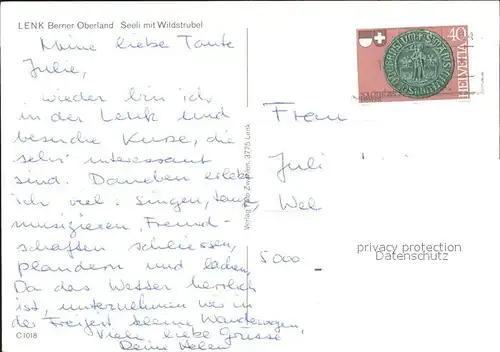 LENK Berner Oberland Seeli mit Wildstrubel
Meine liebe Tante
Julie,
wieder bin ich
in der Lenk und
besuche Kurse, die
sehr interessant
sind. Daneben erlebe
ich viel. Singen, tanzen,
musizieren, Freund-
schaften schliessen,
plaudern und lachen,
Da das Wetter herrlich
ist, unternehmen wir in
der Freizeit kleine Wanderungen,
Viele liebe Grüsse
Deine Helen
C1018
Verlag Foto Zwahlen, 3775 Lenk
40
HELVETIA
Frau
Juli
Wel
5000
privacy protection
Datenschutz